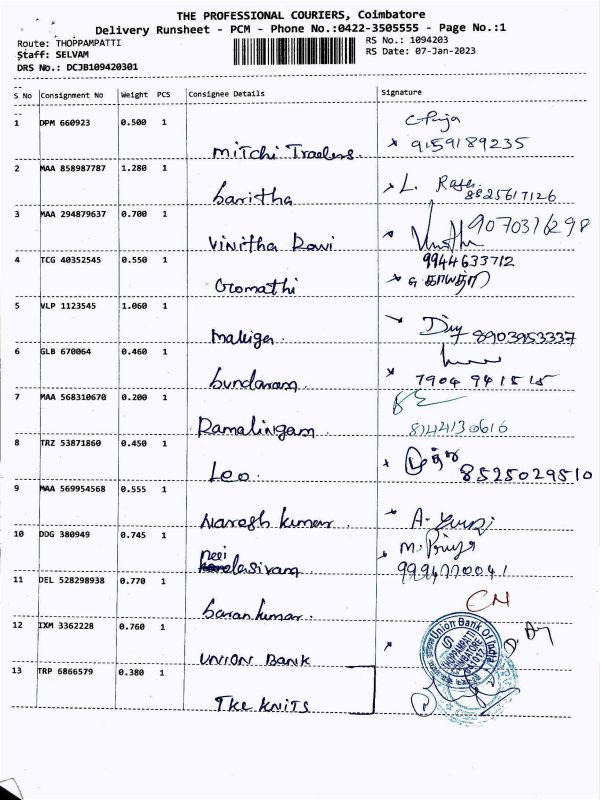 THE PROFESSIONAL COURIERS, Coimbatore
Delivery Runsheet - PCM - Phone No.:0422-3505555 - Page No.:1
Route: THOPPAMPATTI RS No.: 1094203
Staff: SELVAM RS Date: 07-Jan-2023
DRS No.: DCJB109420301
S No Consignment No Weight PCS Consignee Details Signature
1 DPM 660923 0.500 1
Mitchi Traders. 9159189235
2 MAA 858987787 1.280 1 L.
Saritha 8825617126
3 MAA 294879637 0.700 1 9070316298
Vinitha Devi
4 TCG 40352545 0.550 1 9944633712
Gomathi G காயத்ரி
5 VLP 1123545 1.060 1
8903953337
6 GLB 670064 0.460 1
Sundaram 7904 941515
7 MAA 568310670 0.200 1
Ramalingam 8144130616
8 TRZ 53871860 0.450 1
Leo. 8525029510
9 MAA 569954568 0.555 1
Naresh kumar. A.
10 DDG 380949 0.745 1 M. Priya
11 DEL 528298938 0.770 1
Saran kumar.
12 IXM 3362228 0.760 1
UNION BANK Union Bank Of India
THOPPAMPATTI
COIMBATORE
13 TRP 6866579 0.380 1
TKE KNITS